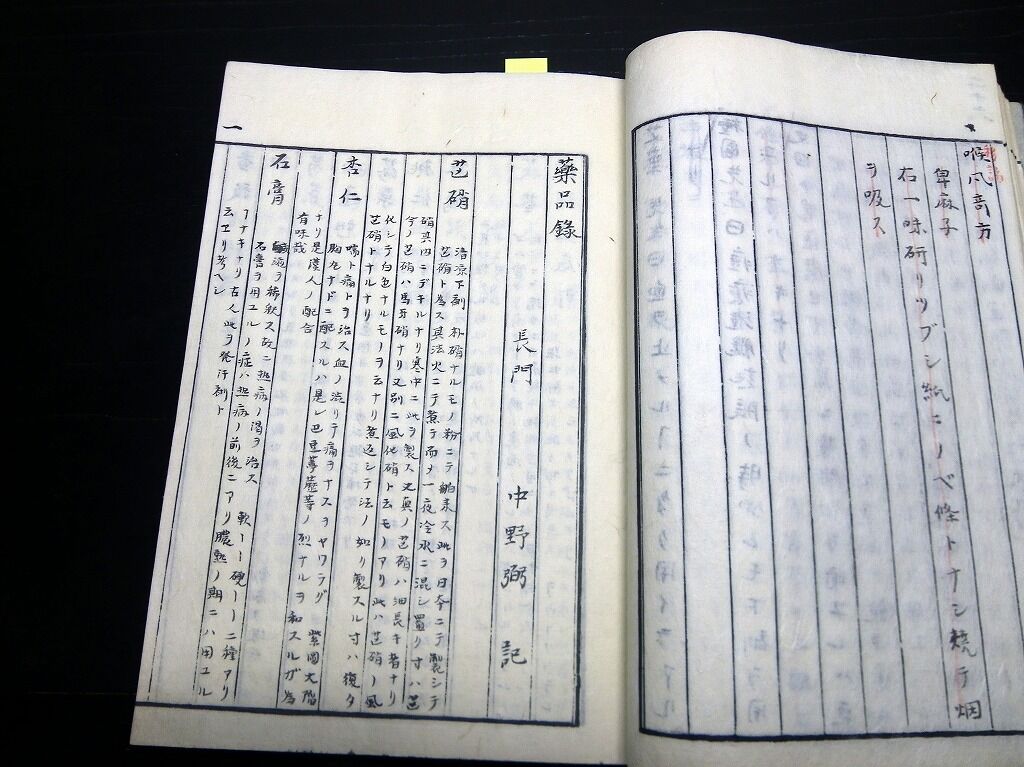 喉風奇方
毘麻子
右一味研リツブシ紙ニノベ條トナシ焼テ烟
ヲ吸ス
一
藥品錄
長門 中野弼 記
芒硝
清涼下剤 朴硝ナルモノ粉ニテ舶来ス此ヲ日本ニテ製シテ
芒硝ト為ス其法火ニテ煮テ而メ一夜冷水ニ混シ置リ寸ハ芒
硝其内ニデキルナリ寒中ニ此ヲ製ス又真ノ芒硝ハ細長キ者ナリ
今ノ芒硝ハ馬牙硝ナリ又別ニ風化硝ト云モノアリ此ハ芒硝ノ風
化シテ白色ナルモノヲ云ナリ煮返シテ法ノ如リ製スル寸ハ復タ
芒硝トナルナリ
杏仁
喘ト痛トヲ治ス血ノ渋リテ痛ヲナスヲヤワラグ 紫圓大陥
胸丸ナドニ配スルハ是レ巴豆葶藶等ノ烈ナルヲ和スルガ為
ナリ是漢人ノ配合
有味哉
石膏
液ヲ稀釈ス故ニ熱病ノ渇ヲ治ス 軟ーー硬ーー二種アリ
石膏ヲ用ユルノ症ハ熱病ノ前後ニアリ膿熱ノ期ニハ用ユル
ヿナキナリ古人此ヲ発汗剤ト
云ヱリ考ヘシ